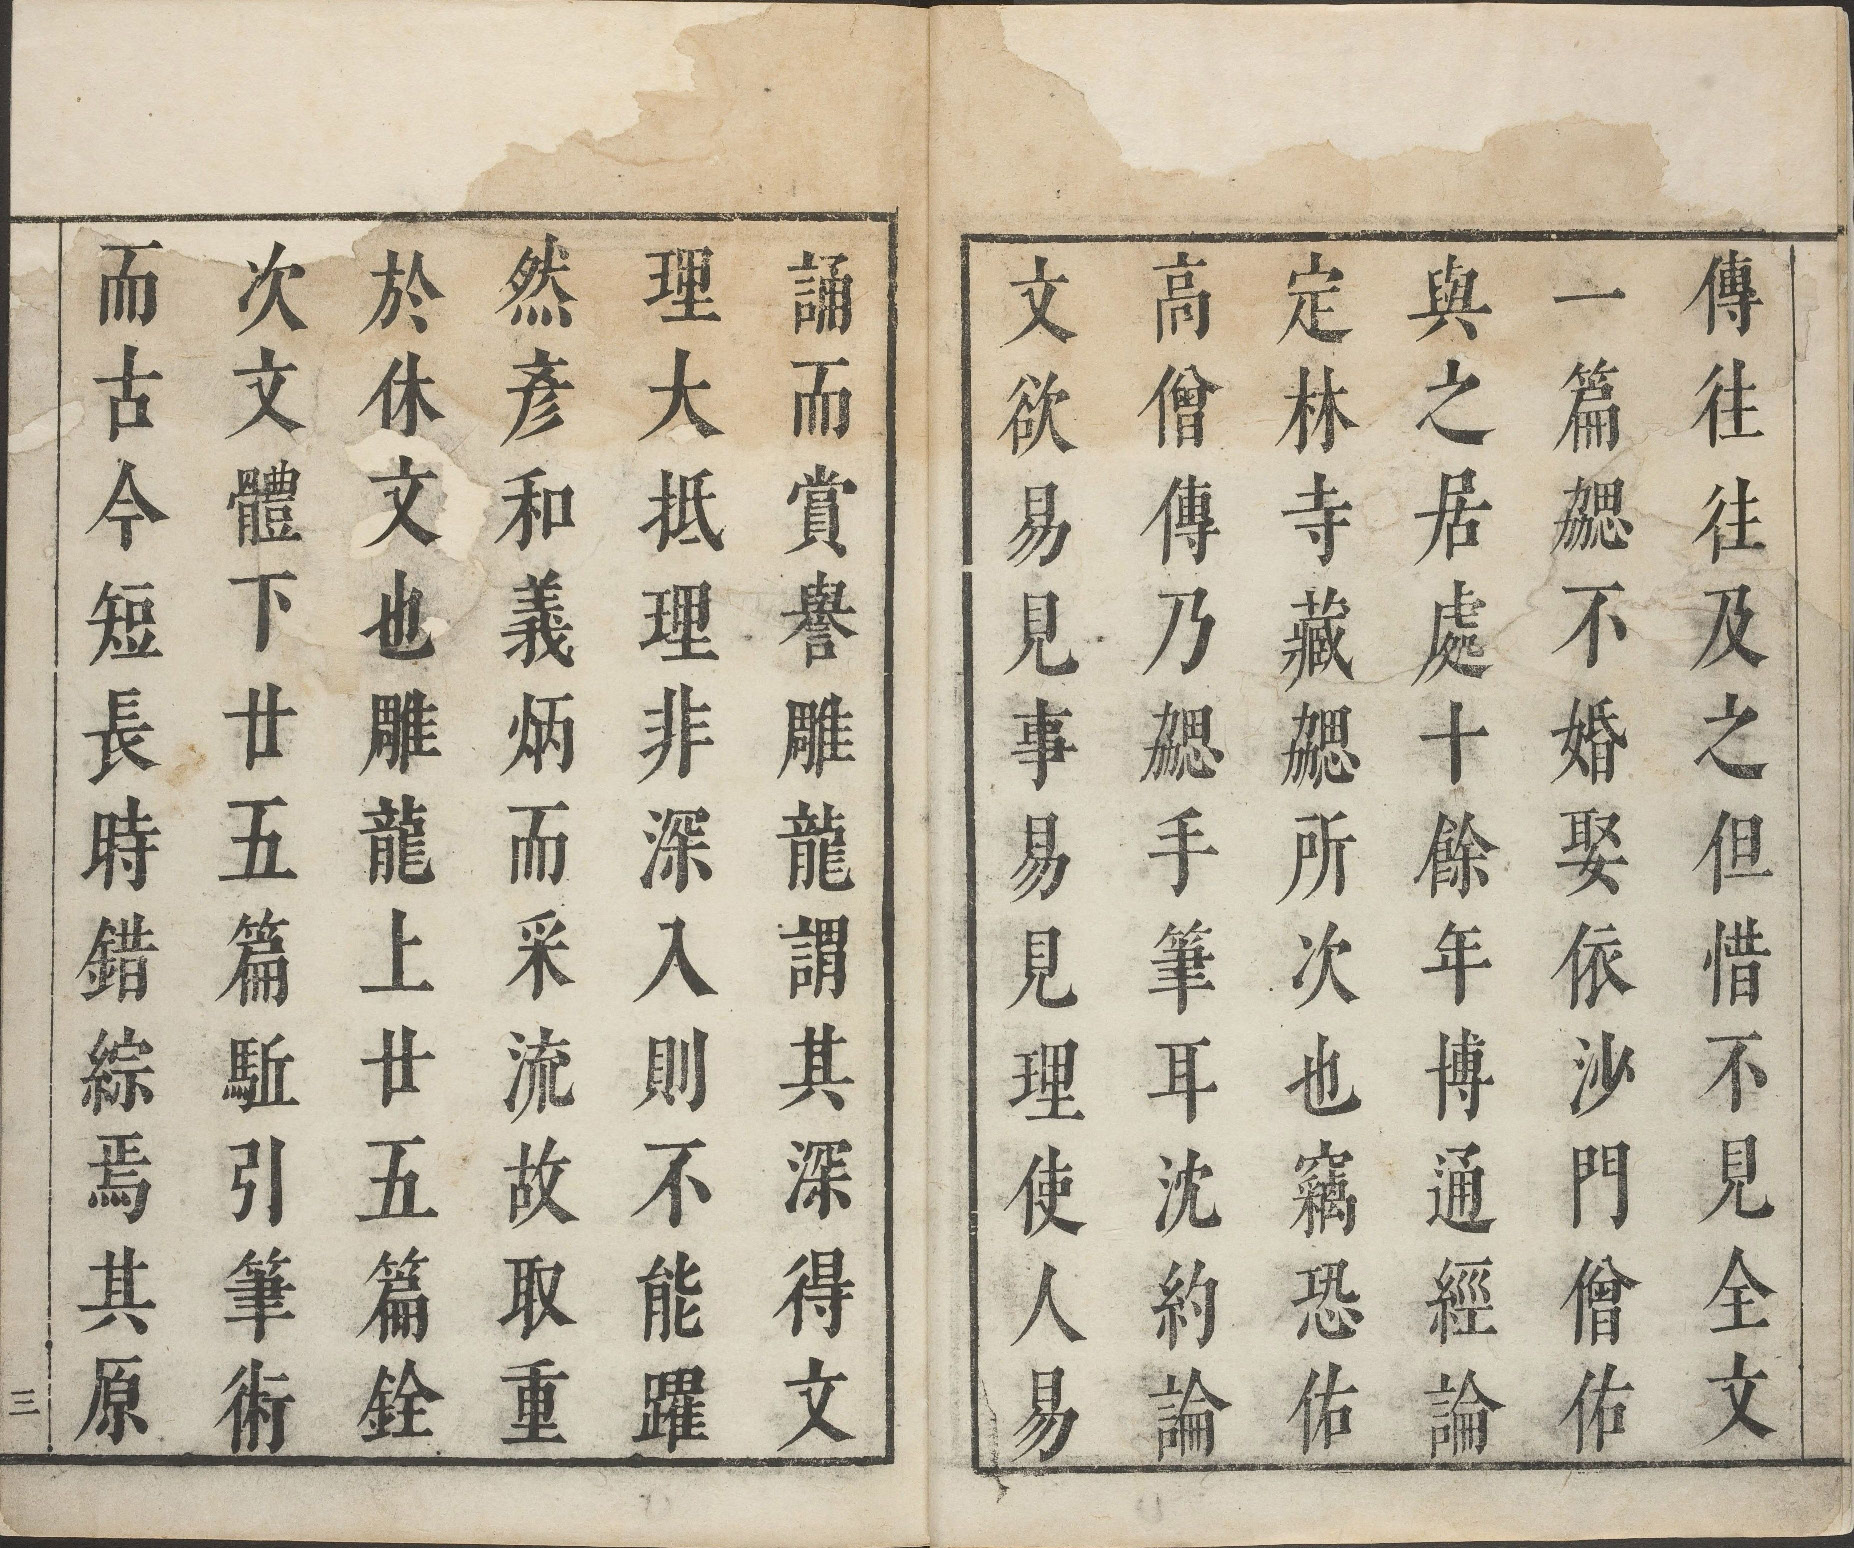 傳往往及之但惜不見全文
一篇勰不婚娶依沙門僧佑
與之居處十餘年博通經論
定林寺藏勰所次也竊恐佑
高僧傳乃勰手筆耳沈約論
文欲易見事易見理使人易
誦而賞譽雕龍謂其深得文
理大抵理非深入則不能躍
然彥和義炳而采流故取重
於休文也雕龍上廿五篇銓
次文體下廿五篇駈引筆術
而古今短長時錯綜焉其原
三